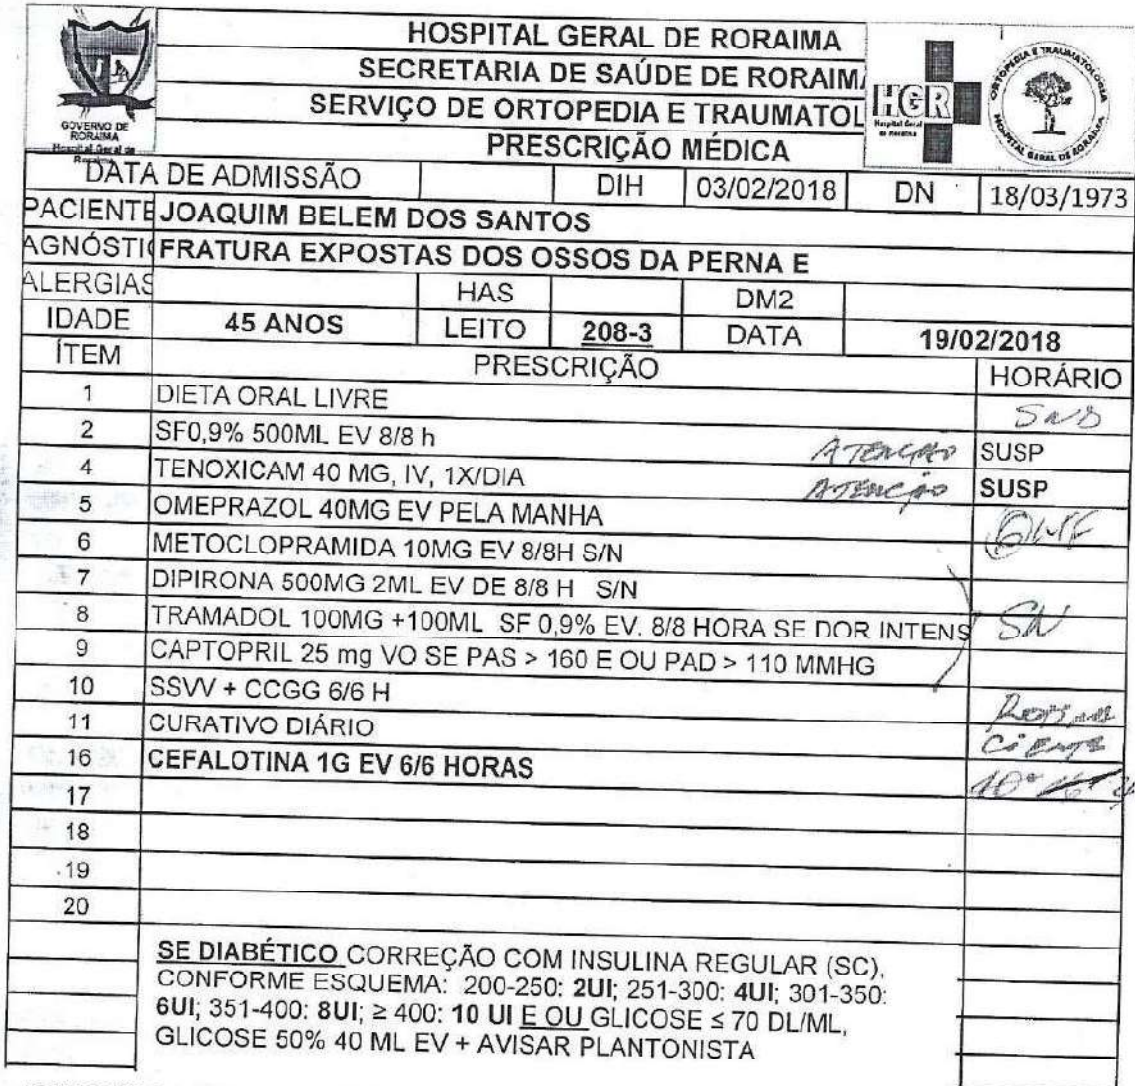 HOSPITAL GERAL DE RORAIMA
SECRETARIA DE SAÚDE DE RORAIMA
SERVIÇO DE ORTOPEDIA E TRAUMATOL
PRESCRIÇÃO MÉDICA
GOVERNO DE
RORAIMA
Hospital Geral de
Roraima
HGR
Hospital Geral
de Roraima
ORTOPEDIA E TRAUMATOLOGIA
HOSPITAL GERAL DE RORAIMA
DATA DE ADMISSÃO DIH 03/02/2018 DN 18/03/1973
PACIENTE JOAQUIM BELEM DOS SANTOS
AGNÓSTI FRATURA EXPOSTAS DOS OSSOS DA PERNA E
ALERGIAS HAS DM2
IDADE 45 ANOS LEITO 208-3 DATA 19/02/2018
ÍTEM PRESCRIÇÃO HORÁRIO
1 DIETA ORAL LIVRE SND
2 SF0,9% 500ML EV 8/8 h ATENÇÃO SUSP
4 TENOXICAM 40 MG, IV, 1X/DIA ATENÇÃO SUSP
5 OMEPRAZOL 40MG EV PELA MANHA
6 METOCLOPRAMIDA 10MG EV 8/8H S/N
7 DIPIRONA 500MG 2ML EV DE 8/8 H S/N
8 TRAMADOL 100MG +100ML SF 0,9% EV. 8/8 HORA SE DOR INTENS SN
9 CAPTOPRIL 25 mg VO SE PAS > 160 E OU PAD > 110 MMHG
10 SSVV + CCGG 6/6 H Rotina
11 CURATIVO DIÁRIO Ciente
16 CEFALOTINA 1G EV 6/6 HORAS
17
18
19
20
SE DIABÉTICO CORREÇÃO COM INSULINA REGULAR (SC),
CONFORME ESQUEMA: 200-250: 2UI; 251-300: 4UI; 301-350:
6UI; 351-400: 8UI; ≥ 400: 10 UI E OU GLICOSE ≤ 70 DL/ML,
GLICOSE 50% 40 ML EV + AVISAR PLANTONISTA